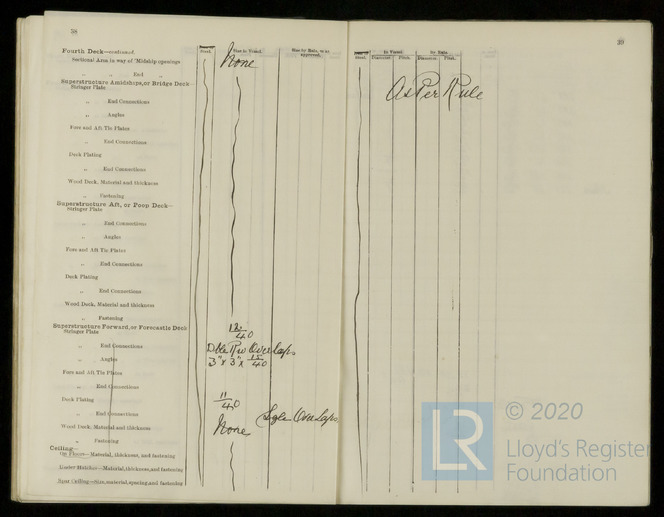 38
Fourth Deck—continued.
Sectional Area in way of 'Midship openings
None
„ „ End „
Superstructure Amidships, or Bridge Deck—
Stringer Plate
„ End Connections
„ Angles
Fore and Aft Tie Plates
„ End Connections
Deck Plating
„ End Connections
Wood Deck, Material and thickness
„ Fastening
Superstructure Aft, or Poop Deck—
Stringer Plate
„ End Connections
„ Angles
Fore and Aft Tie Plates
„ End Connections
Deck Plating
„ End Connections
Wood Deck, Material and thickness
„ Fastening
Superstructure Forward, or Forecastle Deck
Stringer Plate
„ End Connections
Dble Riv Overlaps
„ Angles
3" x 3" x 15/40
Fore and Aft Tie Plates
„ End Connections
Deck Plating
11/40
„ End Connections
Sgle Overlaps
Wood Deck, Material and thickness
None
„ Fastening
Ceiling—
Material, thickness, and fastening
Under Hatches—Material, thickness, and fastening
Spar Ceiling—Size, material, spacing, and fastening
Size in Vessel.
Size by Rule, or as approved.
39
In Vessel.
by Rule.
Diameter. Pitch. Diameter. Pitch.
As Per Rule
LR
© 2020
Lloyd's Register
Foundation